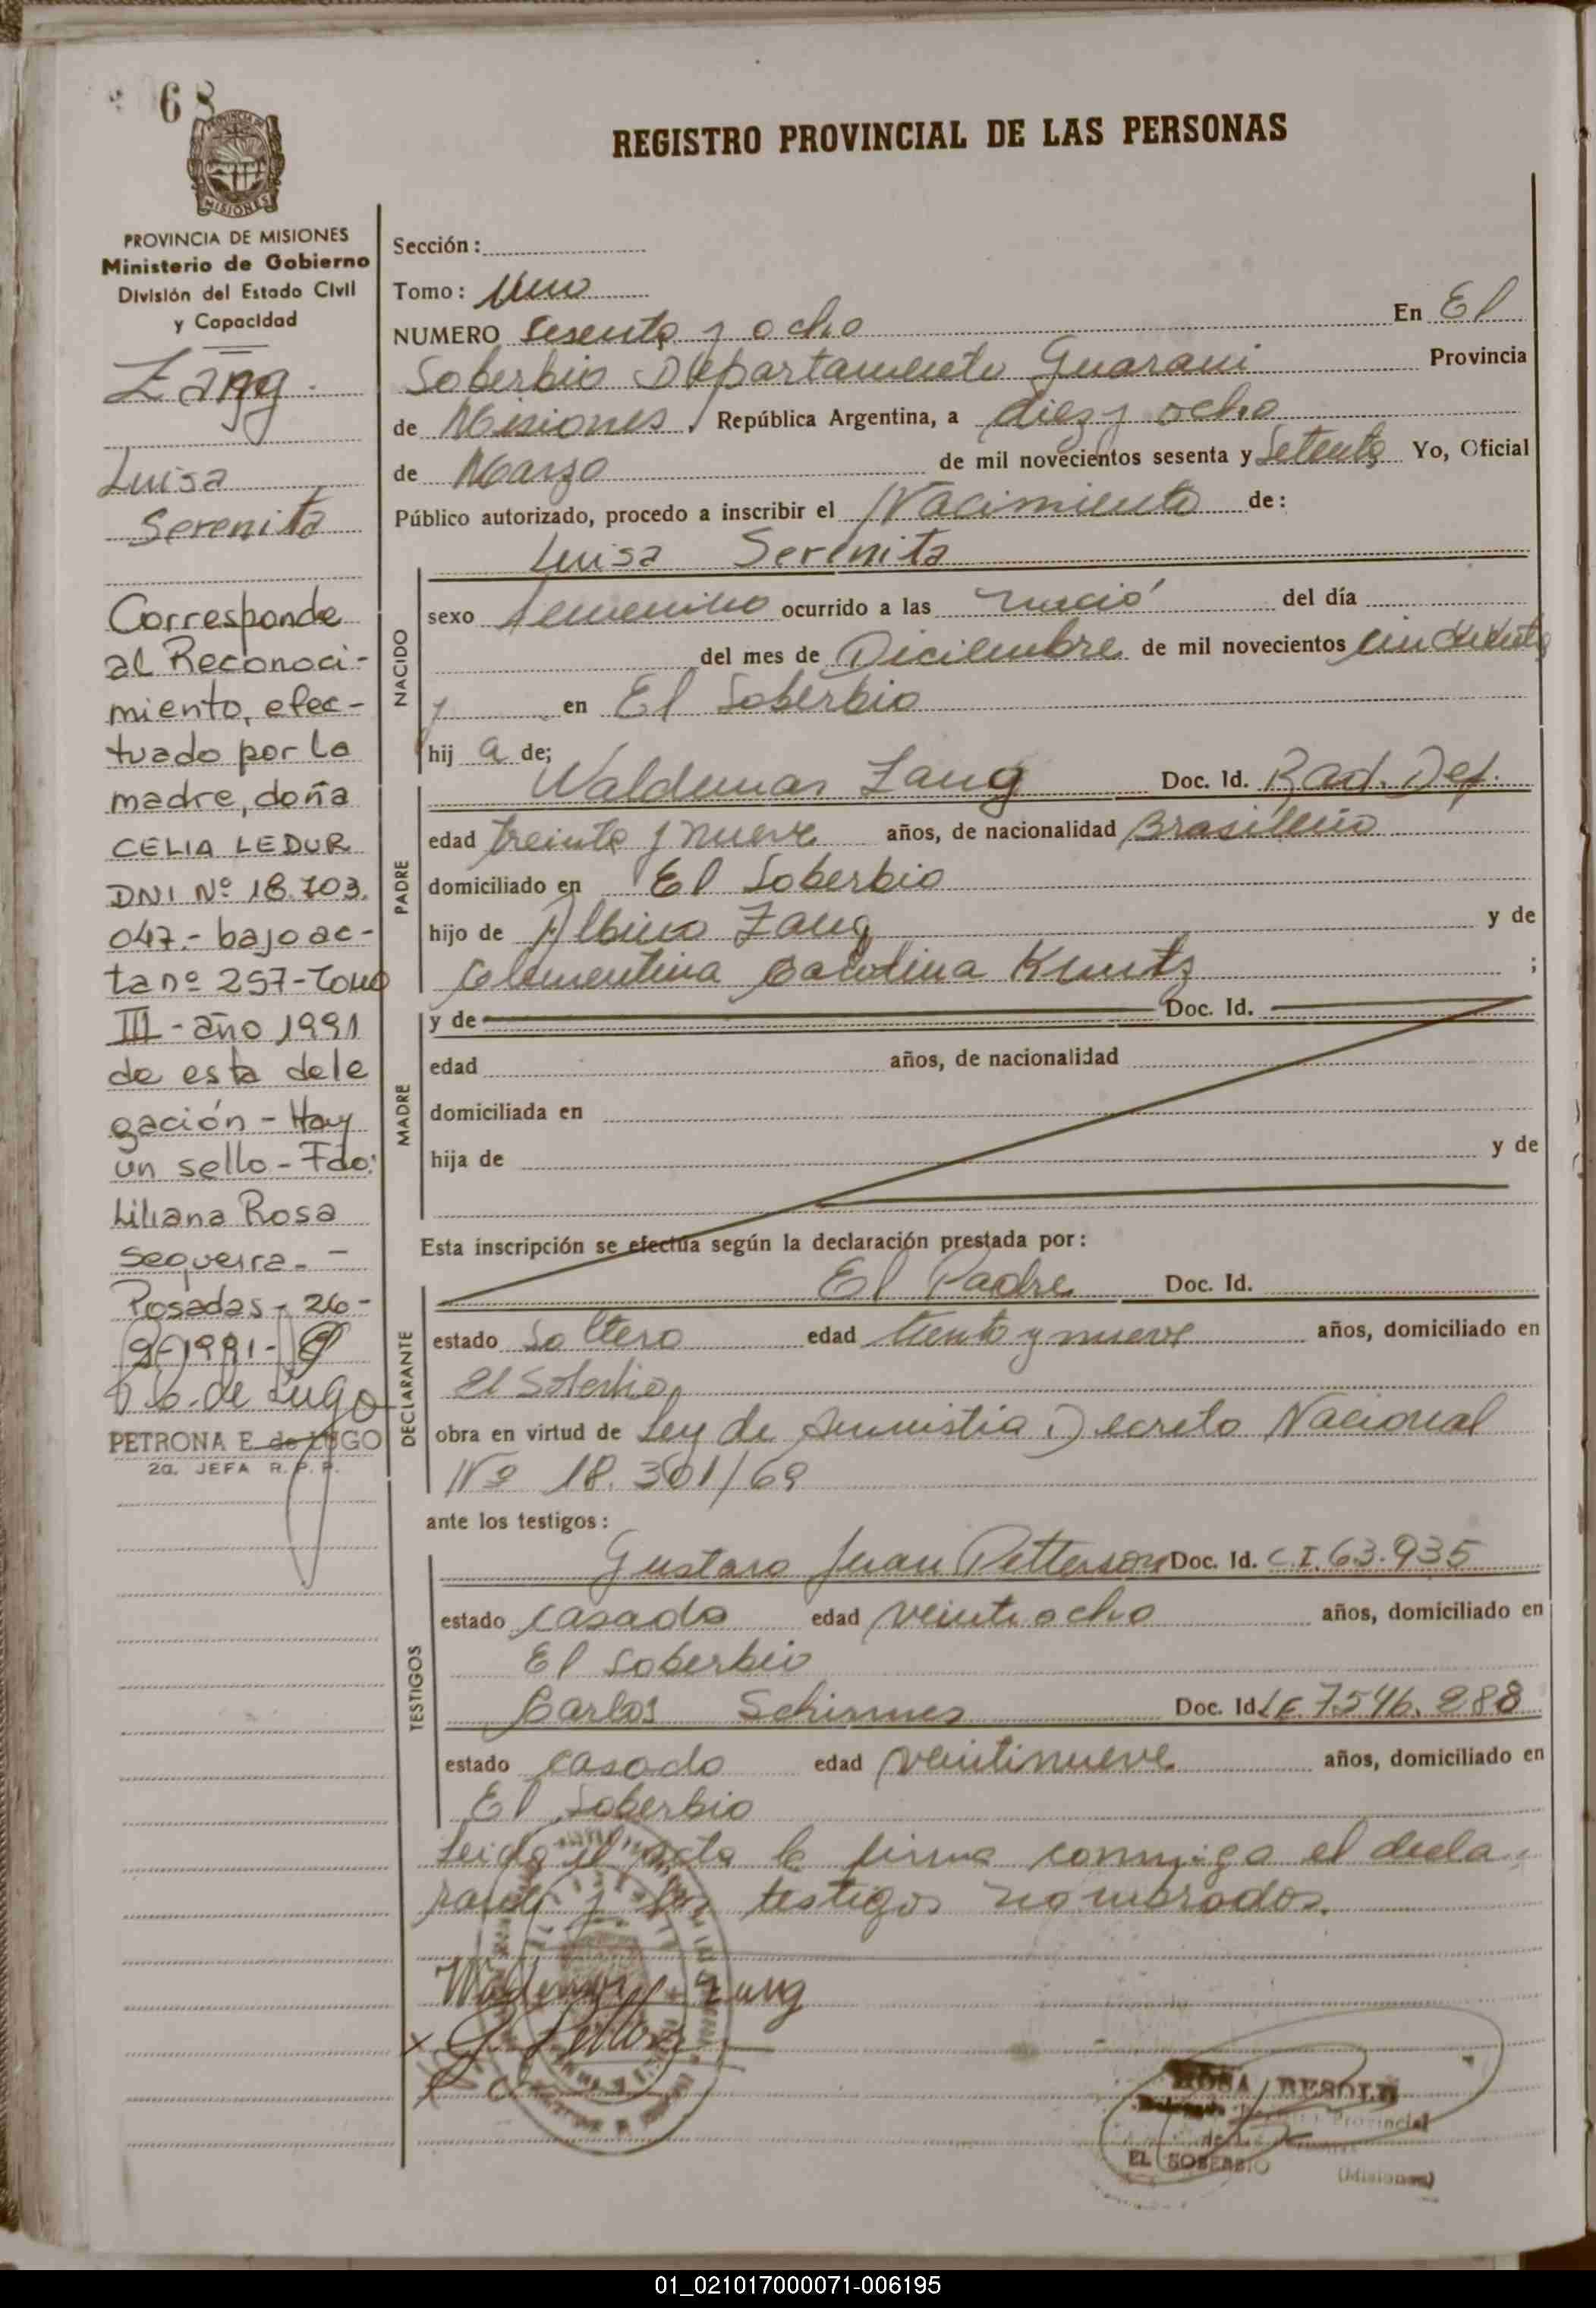 68
PROVINCIA DE MISIONES
Ministerio de Gobierno
División del Estado Civil
y Capacidad
Zang
Luisa
Serenita
Corresponde
al Reconoci-
miento, efec-
tuado por la
madre, doña
CELIA LEDUR
DNI Nº 18.703.
047.- bajo ac-
ta nº 257-Tomo
III - año 1991
de esta dele
gación - Hay
un sello - Fdo:
Liliana Rosa
Sequeira. -
Posadas - 26-
9-1991-
de Lugo
PETRONA E. de LUGO
2a. JEFA R. P. P.
REGISTRO PROVINCIAL DE LAS PERSONAS
Sección:
Tomo: Uno
NUMERO Sesenta y ocho En El
Soberbio Departamento Guarani Provincia
de Misiones, República Argentina, a diez y ocho
de Marzo de mil novecientos sesenta y Setenta Yo, Oficial
Público autorizado, procedo a inscribir el Nacimiento de:
Luisa Serenita
NACIDO
sexo femenino ocurrido a las nació del día
del mes de Diciembre de mil novecientos cincuenta
y en El Soberbio
hij a de;
PADRE
Waldemar Zang Doc. Id. Rad. Def.
edad treinta y nueve años, de nacionalidad Brasileño
domiciliado en El Soberbio
hijo de Albino Zang y de
Clementina Carolina Kuntz ;
MADRE
y de Doc. Id.
edad años, de nacionalidad
domiciliada en
hija de y de
Esta inscripción se efectúa según la declaración prestada por:
DECLARANTE
El Padre Doc. Id.
estado Soltero edad treinta y nueve años, domiciliado en
El Soberbio
obra en virtud de Ley de Amnistia Decreto Nacional
Nº 18.301/69
ante los testigos:
TESTIGOS
Gustavo Juan Petterson Doc. Id. C.I. 63.935
estado Casado edad veintiocho años, domiciliado en
El Soberbio
Carlos Doc. Id. L.E. 7.546.288
estado casado edad veintinueve años, domiciliado en
El Soberbio
Leida el acta la firma conmigo el decla-
rante y los testigos nombrados.
Waldemar Zang
ROSA BESOLD
Provincial
de las
EL SOBERBIO (Misiones)
01_021017000071-006195